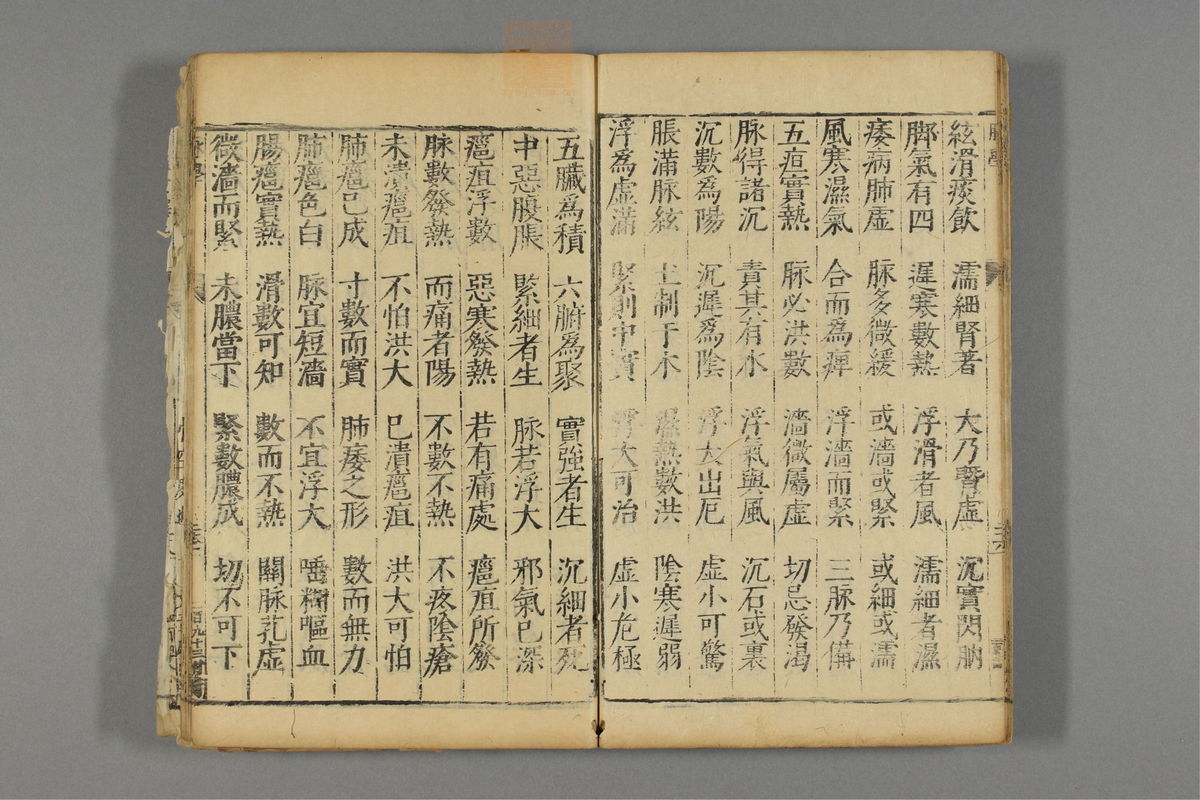 絃滑痰飲 濡細腎著 大乃腎虛 沉實閃朒
脚氣有四 遲寒數熱 浮滑者風 濡細者濕
痿病肺虛 脉多微緩 或濇或緊 或細或濡
風寒濕氣 合而為痺 浮濇而緊 三脉乃備
五疸實熱 脉必洪數 濇微屬虛 切忌發渴
脉得諸沉 責其有水 浮氣與風 沉石或裏
沉數為陽 沉遲為陰 浮大出厄 虛小可驚
脹滿脉絃 土制于木 濕熱數洪 陰寒遲弱
浮為虛滿 緊則中實 浮大可治 虛小危極
五臟為積 六腑為聚 實強者生 沉細者死
中惡腹脹 緊細者生 脉若浮大 邪氣已深
癰疽浮數 惡寒發熱 若有痛處 癰疽所發
脉數發熱 而痛者陽 不數不熱 不疼陰瘡
未潰癰疽 不怕洪大 已潰癰疽 洪大可怕
肺癰已成 寸數而實 肺痿之形 數而無力
肺癰色白 脉宜短濇 不宜浮大 唾糊嘔血
腸癰實熱 滑數可知 數而不熱 關脉芤虛
微濇而緊 未膿當下 緊數膿成 切不可下